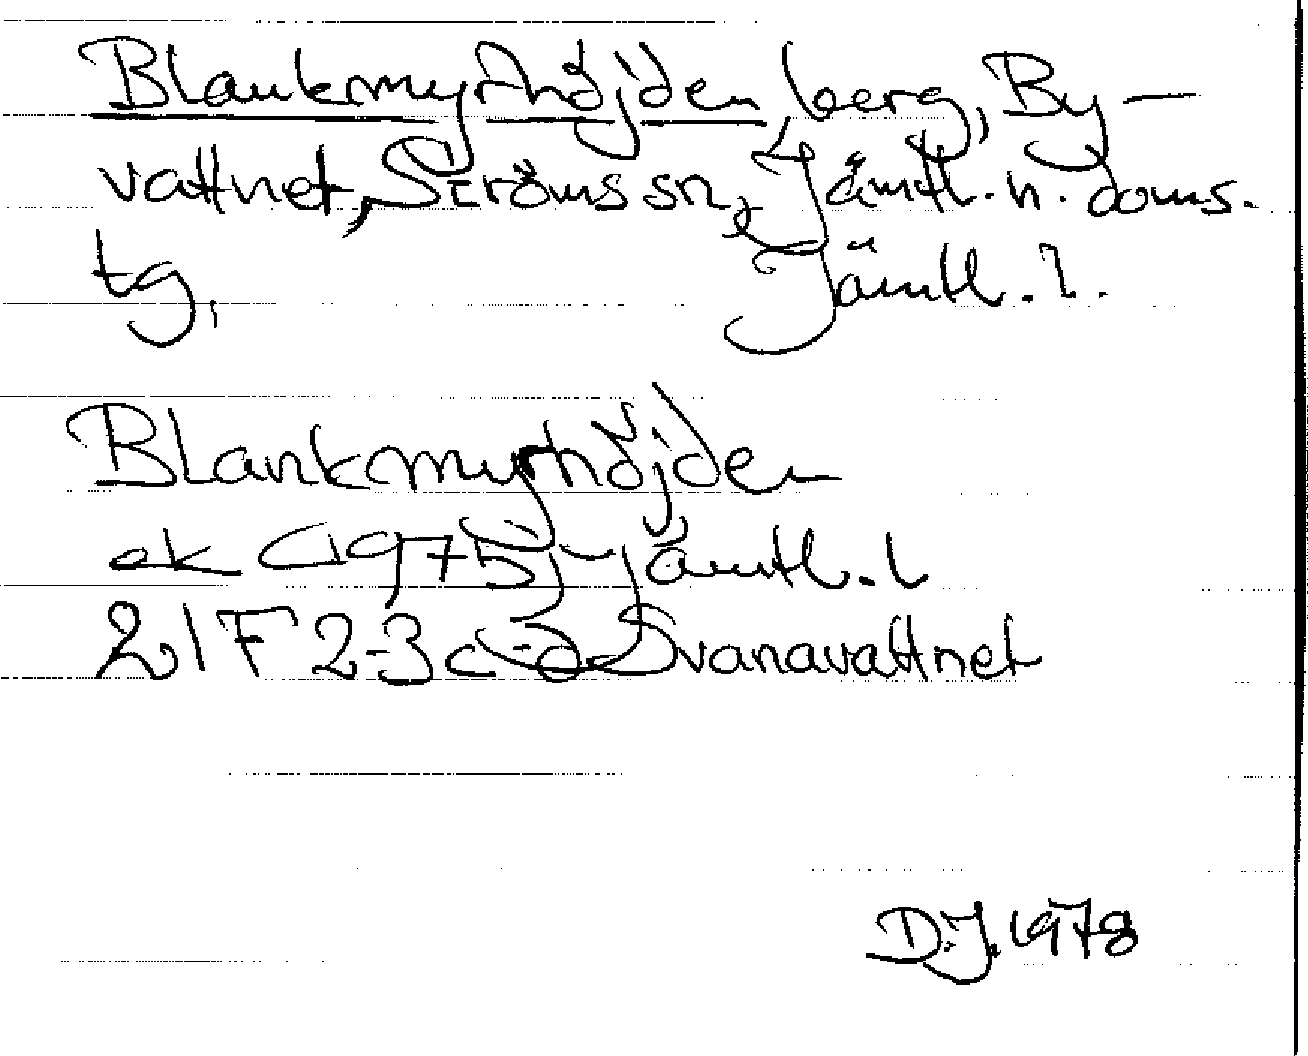 Blankmyrhöjden, berg, By-
vattnet, Ströms sn, Jämtl. n. doms.
tg, Jämtl. l.
Blankmyrhöjden
ek C 1975, Jämtl. l
21F 2-3 c-d Svanavattnet
D.J. 1978